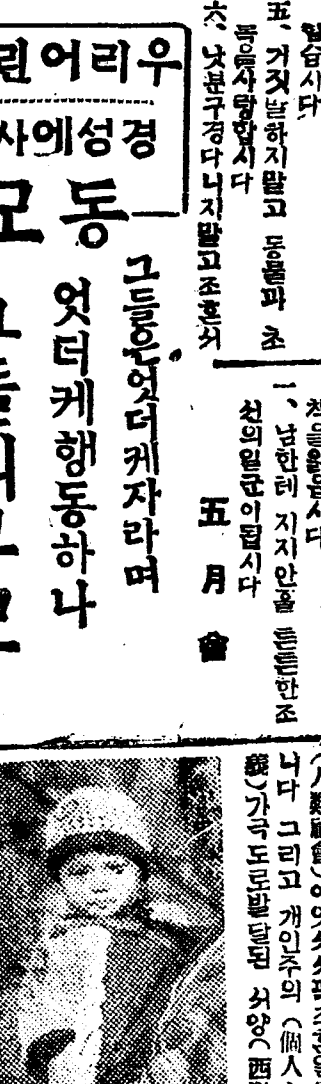 합시다
五、거짓말하지말고 동물과 초
목을사랑합시다
六、낫분구경다니지말고조흔서
책을읽읍시다
一、남한테 지지안흘 튼튼한조
선의일군이됩시다
五月會
우리어린
경성에사
동
그들은엇더케자라며
엇더케행동하나
니다 그리고 개인주의(個人
義)가극도로발달된 서양(西